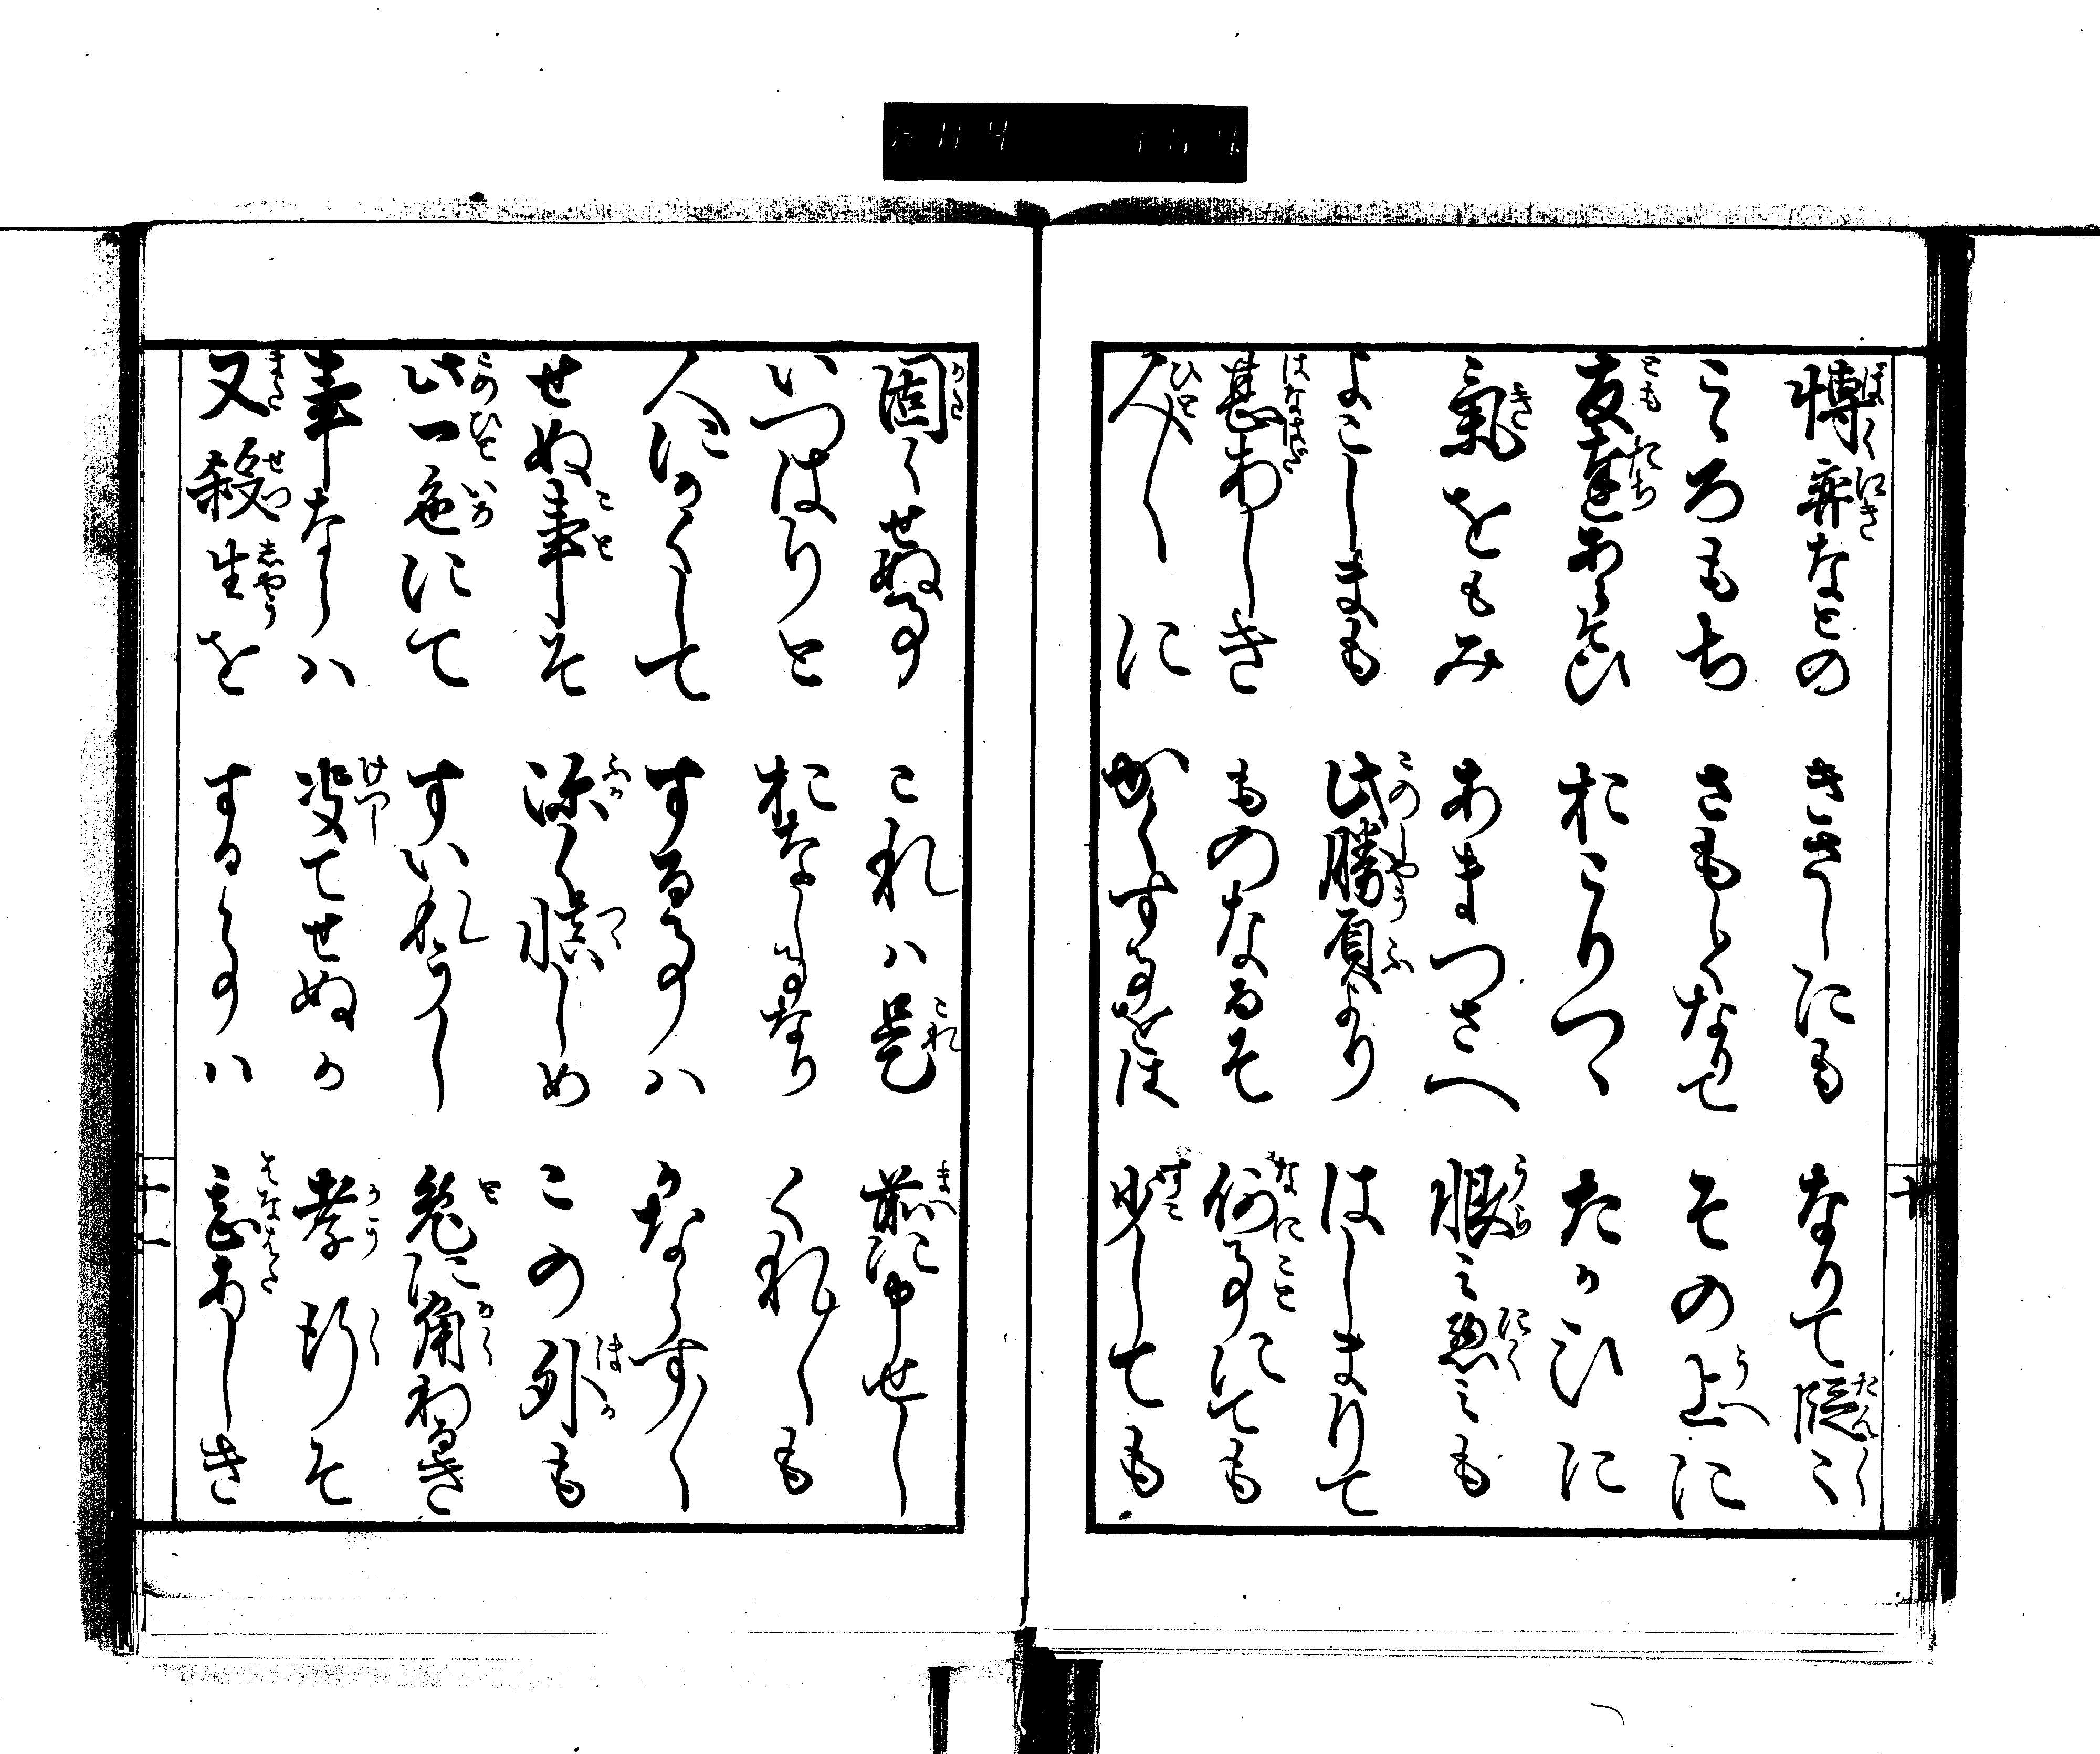 博奕なとの きさしにも なりて段〻
こゝろもち さもしくなりて その上に
友達あらそひ おこりつゝ たかひに
氣をもみ あまつさへ 恨ミ悪ミも
よこしまも 此勝負より はしまりて
甚あしき ものなるそ 何事にても
人〱に かくす事をは 少しても
十
固くせぬ事 これハ是 前に申せし
いつはりと おなし事なり くれ〱も
人にかくして する事ハ かならす〱
せぬ事そ 深く慎しめ この外も
此一色にて すいれうし 兎に角わるき
事ならハ 决てせぬか 孝行そ
又殺生を する事ハ 甚あしき
十一